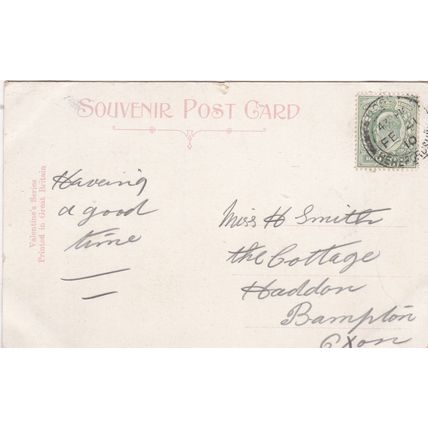 SOUVENIR POST CARD
Valentine's Series
Printed in Great Britain
Haveing
a good
time
Miss H Smith
the Cottage
Haddon
Bampton
Oxon
FE 21
10